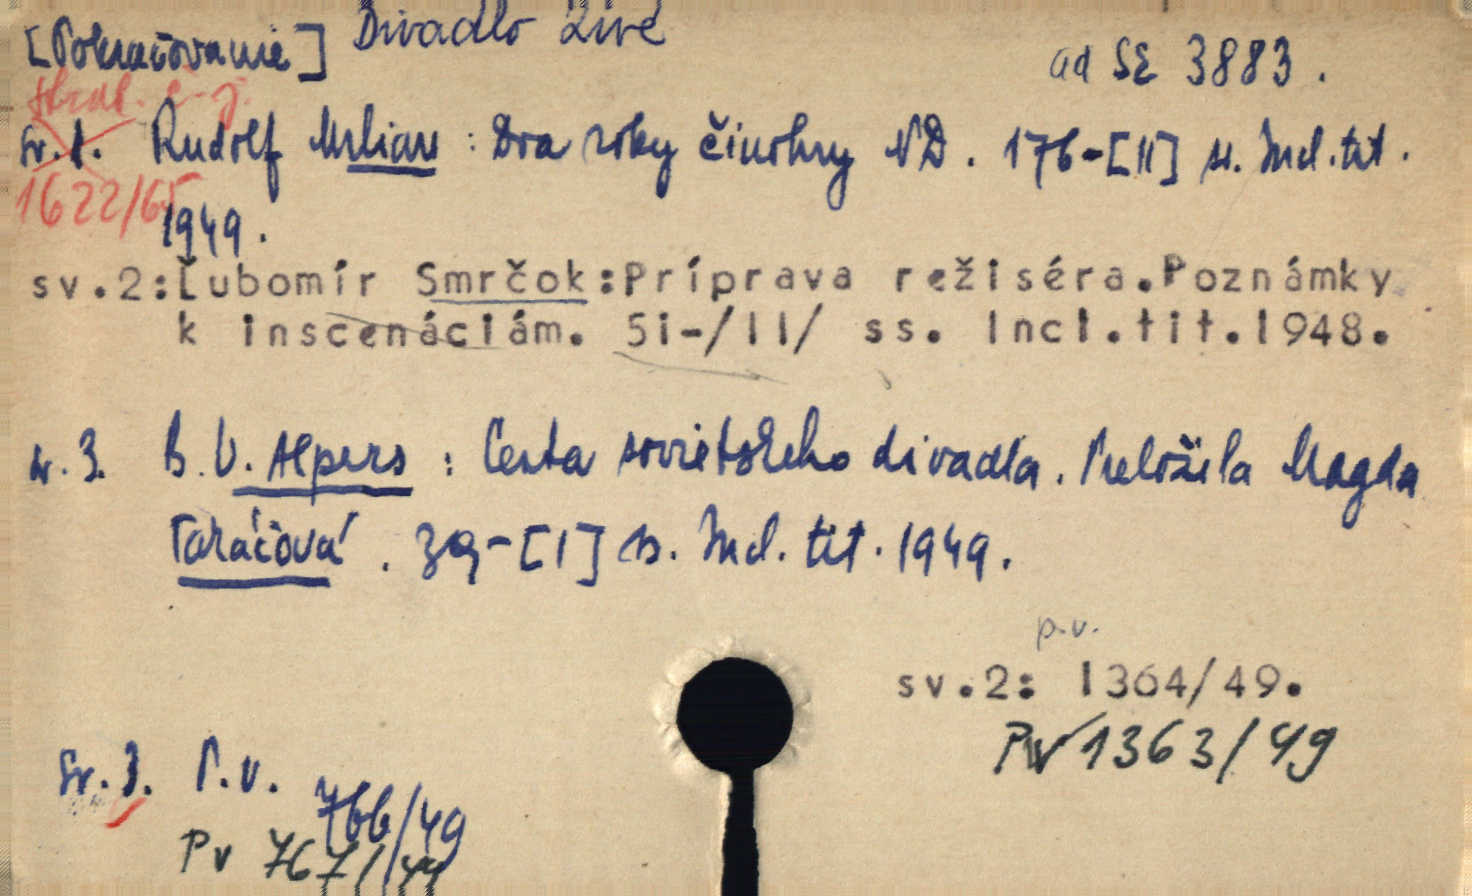 [Pokračovanie] Divadlo živé
ad SE 3883.
sv.1. Rudolf Mrlian : Dva roky činohry ND. 176-[II] s. Incl. tit.
1622/65
1949.
sv.2:Ľubomír Smrčok:Príprava režiséra.Poznámky
k inscenáciám. 51-/II/ ss. Incl.tit.1948.
sv. 3. B. V. Alpers : Cesta sovietskeho divadla. Preložila Magda
Taráčová. 39-[I] s. Incl. tit. 1949.
p.v.
sv.2: 1364/49.
Pv 1363/49
Sv. 3. P.v. 766/49
Pv 767/49